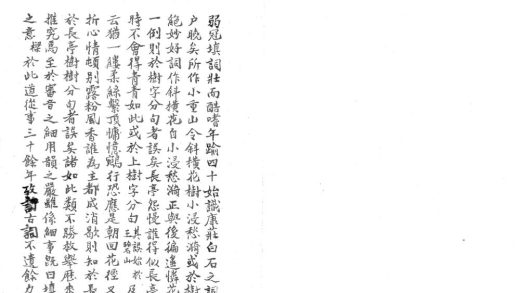 弱冠填詞壯而酷嗜年踰四十始識康莊白石之詞
户曉矣所作小重山令斜橫花樹小浸愁漪或於樹
絕妙好詞作斜橫花自小浸愁漪正與後徧遙憐花
一倒則於樹字分句者誤矣長亭怨慢誰得似長亭
時不會得青青如此或於上樹字分句其誤始於
云猶一縷柔絲繫頂慵憶鷗行恐應是朝回花徑又
折心情頓別露粉風香誰為主都成消歇則知於長
於長亭樹樹分句者誤矣諸如此類不勝枚舉歷來
推究焉至於審音之細用韻之嚴雖係細事既曰填
之意樑於此道從事三十餘年攷訂古詞不遺餘力